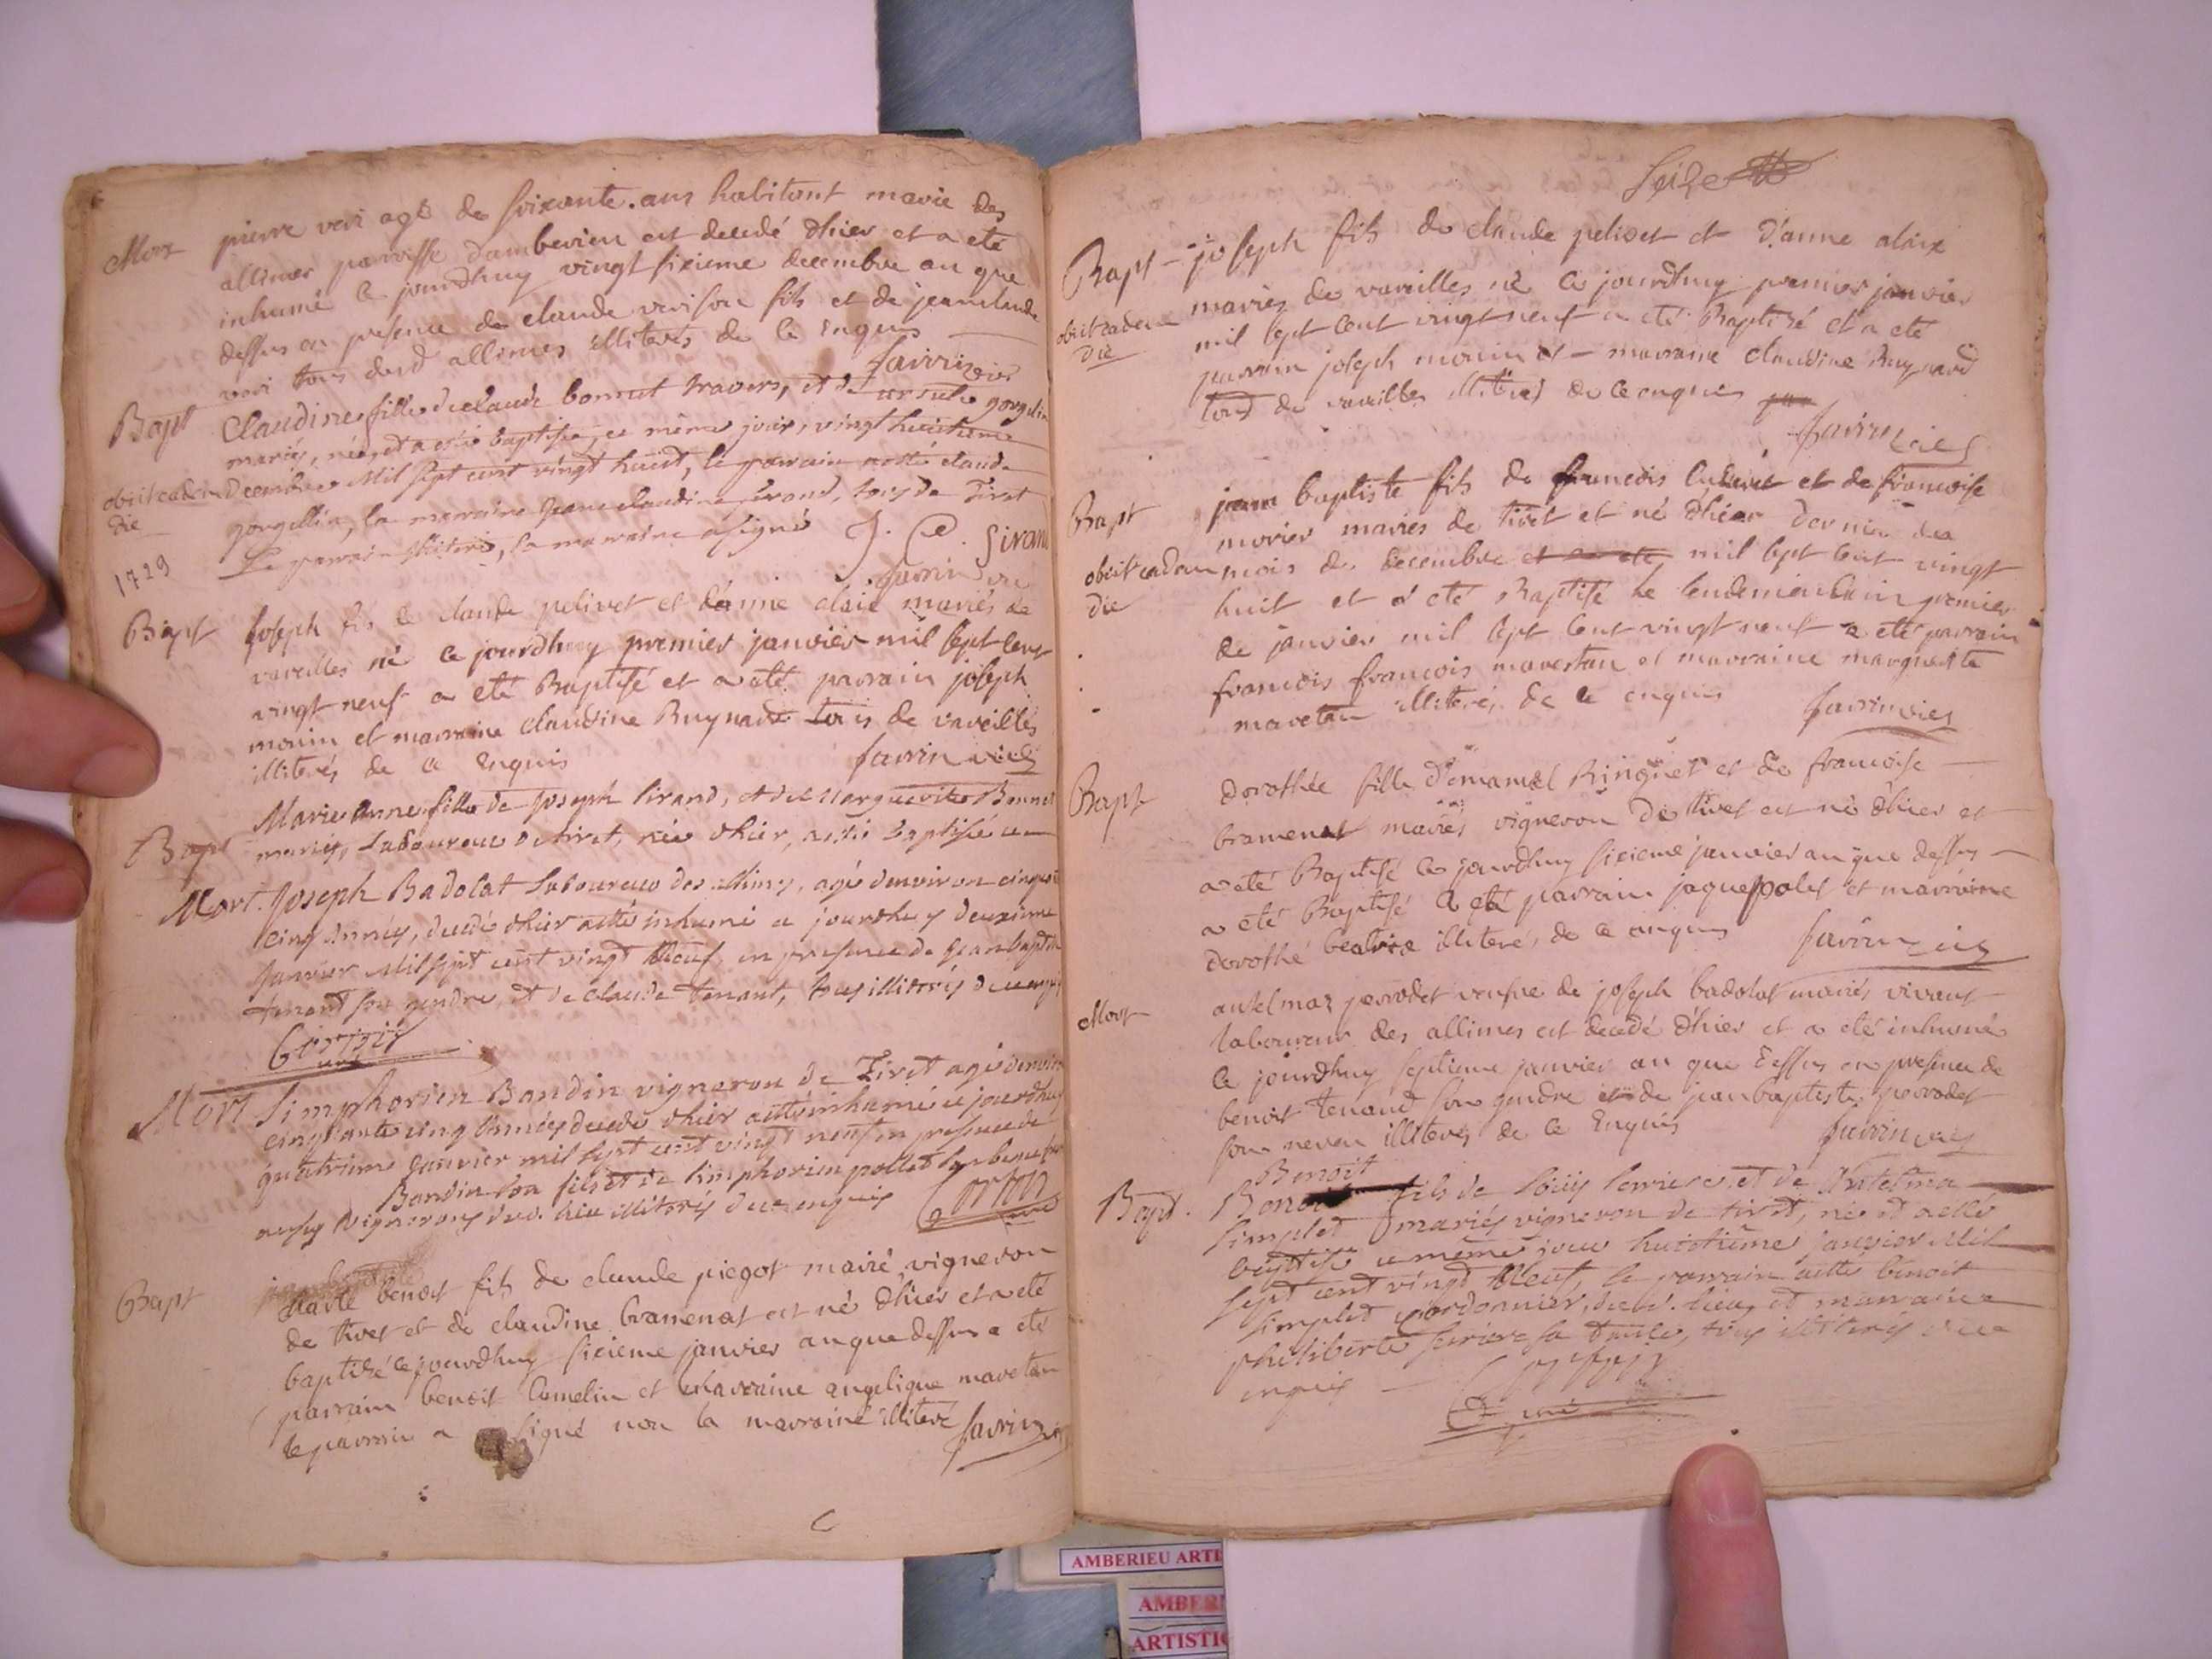 Mort pierre veri agé de soixante ans habitant marié des
allimes paroisse damberieu est decedé dhier et a eté
inhumé ce jourdhuy vingt sixieme decembre an que
dessus en presence de claude veri son fils et de jeanclaude
veri tous dud allimes illiterés de ce enquis
Savrin vic
Bapt Claudine fille de claude bonnet travers, et de ursule gorgellin
mariés, née et a esté baptisée, ce même jour, vingt huictieme
obiit eadem decembre Mil sept cent vingt huict, le parrain a esté claude
die gorgellin, la marraine Jeane claudine sirand, tous de Tiret
Le parrain illiteré, la marraine a signé J. C. Sirand
1729
Savrin vic
Bapt Joseph fis de claude pelivet et d'anne alaix mariés de
vareilles né ce jourdhuy premier janvier mil sept cent
vingt neuf a eté Baptisé et a eté parrain joseph
monin et marraine claudine Buynard tous de vareilles
illiterés de ce enquis Savrin vic
Bapt Marie Anne fille de Joseph sirand, et de Marguerite Bonnet
mariés, Laboureur de tiret, née dhier, a esté baptisée ce
Mort. Joseph Badolat Laboureur des allimes, agé denviron cinquante
cinq Années, decedé dhier a esté inhumé ce jourdhuy deuxieme
Janvier Mil sept cent vingt Neuf, en presence de Jean baptiste
tenant son gendre, et de claude tenant, tous illiterés de ce enquis
Mort Simphorien Baudin vigneron de Tiret agé denviron
cinquante cinq Années decedé dhier a esté inhumé ce jourdhuy
quatrieme Janvier mil sept cent vingt neuf en presence de
Baudin son fils et de simphorien pollet son beaufrere
vignerons dud. lieu illiterés de ce enquis
curé
Bapt benoit fils de claude piegot marié vigneron
de tiret et de claudine bramenat est né dhier et a eté
baptizé ce jourdhuy sixieme janvier an que dessus a eté
parrain benoit lamelin et la marraine angelique maretan
le parrain a signé non la marraine illiteré Savrin vic
Seize
Bapt - joseph fils de claude pelivet et d'anne alaix
mariés de vareilles né ce jourdhuy premier janvier
obiit eadem mil sept cent vingt neuf a eté Baptizé et a eté
die parrain joseph monin et - marraine claudine Buynard
tous de vareilles illiterés de ce enquis
Savrin vic
Bapt jean baptiste fils de francois et de francoise
morier mariés de tiret et né dhier dernier du
obiit eadem mois de decembre et a eté mil sept cent vingt
die huit et a eté Baptisé le lendemain premier
de janvier mil sept cent vingt neuf a eté parrain
francois francois marestan et marraine marguerite
maretan illiterés de ce enquis Savrin vic
Bapt dorothée fille d'emanuel Ringuet et de francoise
bramenat mariés vigneron de tiret est né dhier et
a eté Baptisé ce jourdhuy sixieme janvier an que dessus
a eté Baptisé a eté parrain jaque polet et marraine
dorothé beatrix illiterés de ce enquis Savrin vic
Mort antelmaz perrodet veufve de joseph badolat mariés vivant
laboureur des allimes est decedé dhier et a eté inhumé
ce jourdhuy septieme janvier an que dessus en presence de
benoit tenand son gendre et de jean baptiste perrodet
son neveu illiterés de ce Enquis Savrin vic
Benoit
Bapt. Benoit fils de louis serriere et de Antelma
simplet mariés vigneron de tiret, né et a esté
baptisé ce même jour huictieme janvier Mil
sept cent vingt Neuf, le parrain a esté benoit
simplet cordonnier, dud. lieu, et marraine
philiberte serriere sa tante, tous illiterés de ce
enquis
curé
AMBERIEU ARTI
AMBERI
ARTISTI